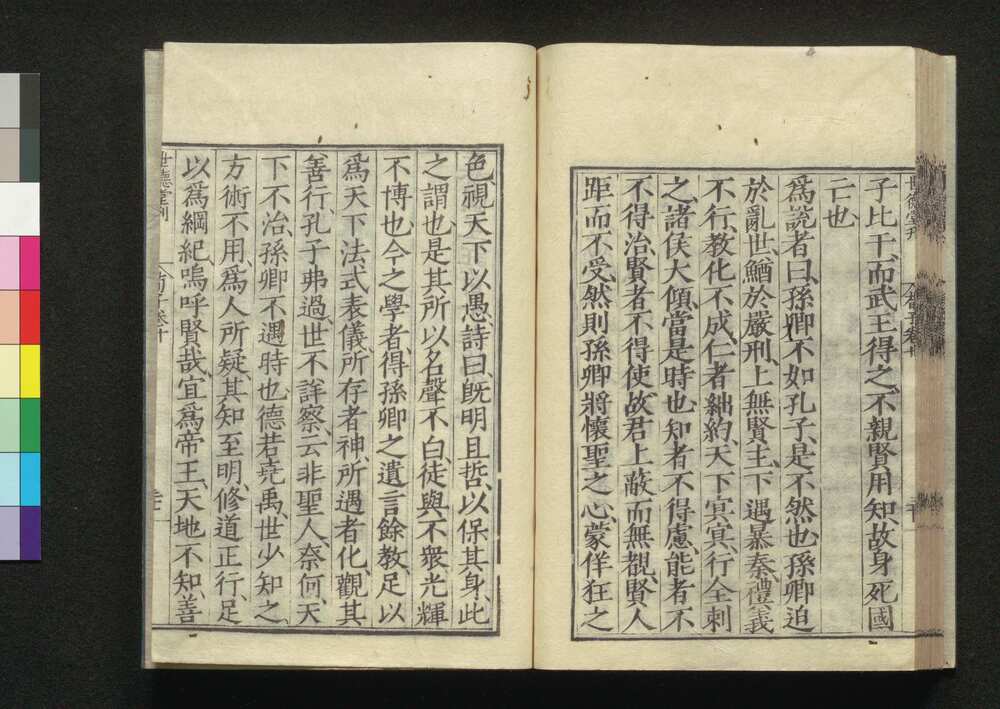 子比干、而武王得之、不親賢用知故身死國
亡也、
爲說者曰、孫卿不如孔子、是不然也、孫卿迫
於亂世、鰌於嚴刑、上無賢主、下遇暴秦、禮義
不行、教化不成、仁者絀約、天下冥冥、行全刺
之、諸侯大傾、當是時也、知者不得慮、能者不
不得治、賢者不得使、故君上蔽而無覩、賢人
距而不受、然則孫卿將懷聖之心、蒙佯狂之
色、視天下以愚、詩曰、旣明且哲、以保其身、此
之謂也、是其所以名聲不白、徒與不衆、光輝
不博也、今之學者、得孫卿之遺言餘教、足以
爲天下法式表儀、所存者神、所遇者化、觀其
善行、孔子弗過、世不詳察、云非聖人、奈何、天
下不治、孫卿不遇時也、德若堯禹、世少知之、
方術不用、爲人所疑、其知至明、修道正行、足
以爲綱紀、嗚呼賢哉、宜爲帝王、天地不知、善
世德堂刊
荀子卷十